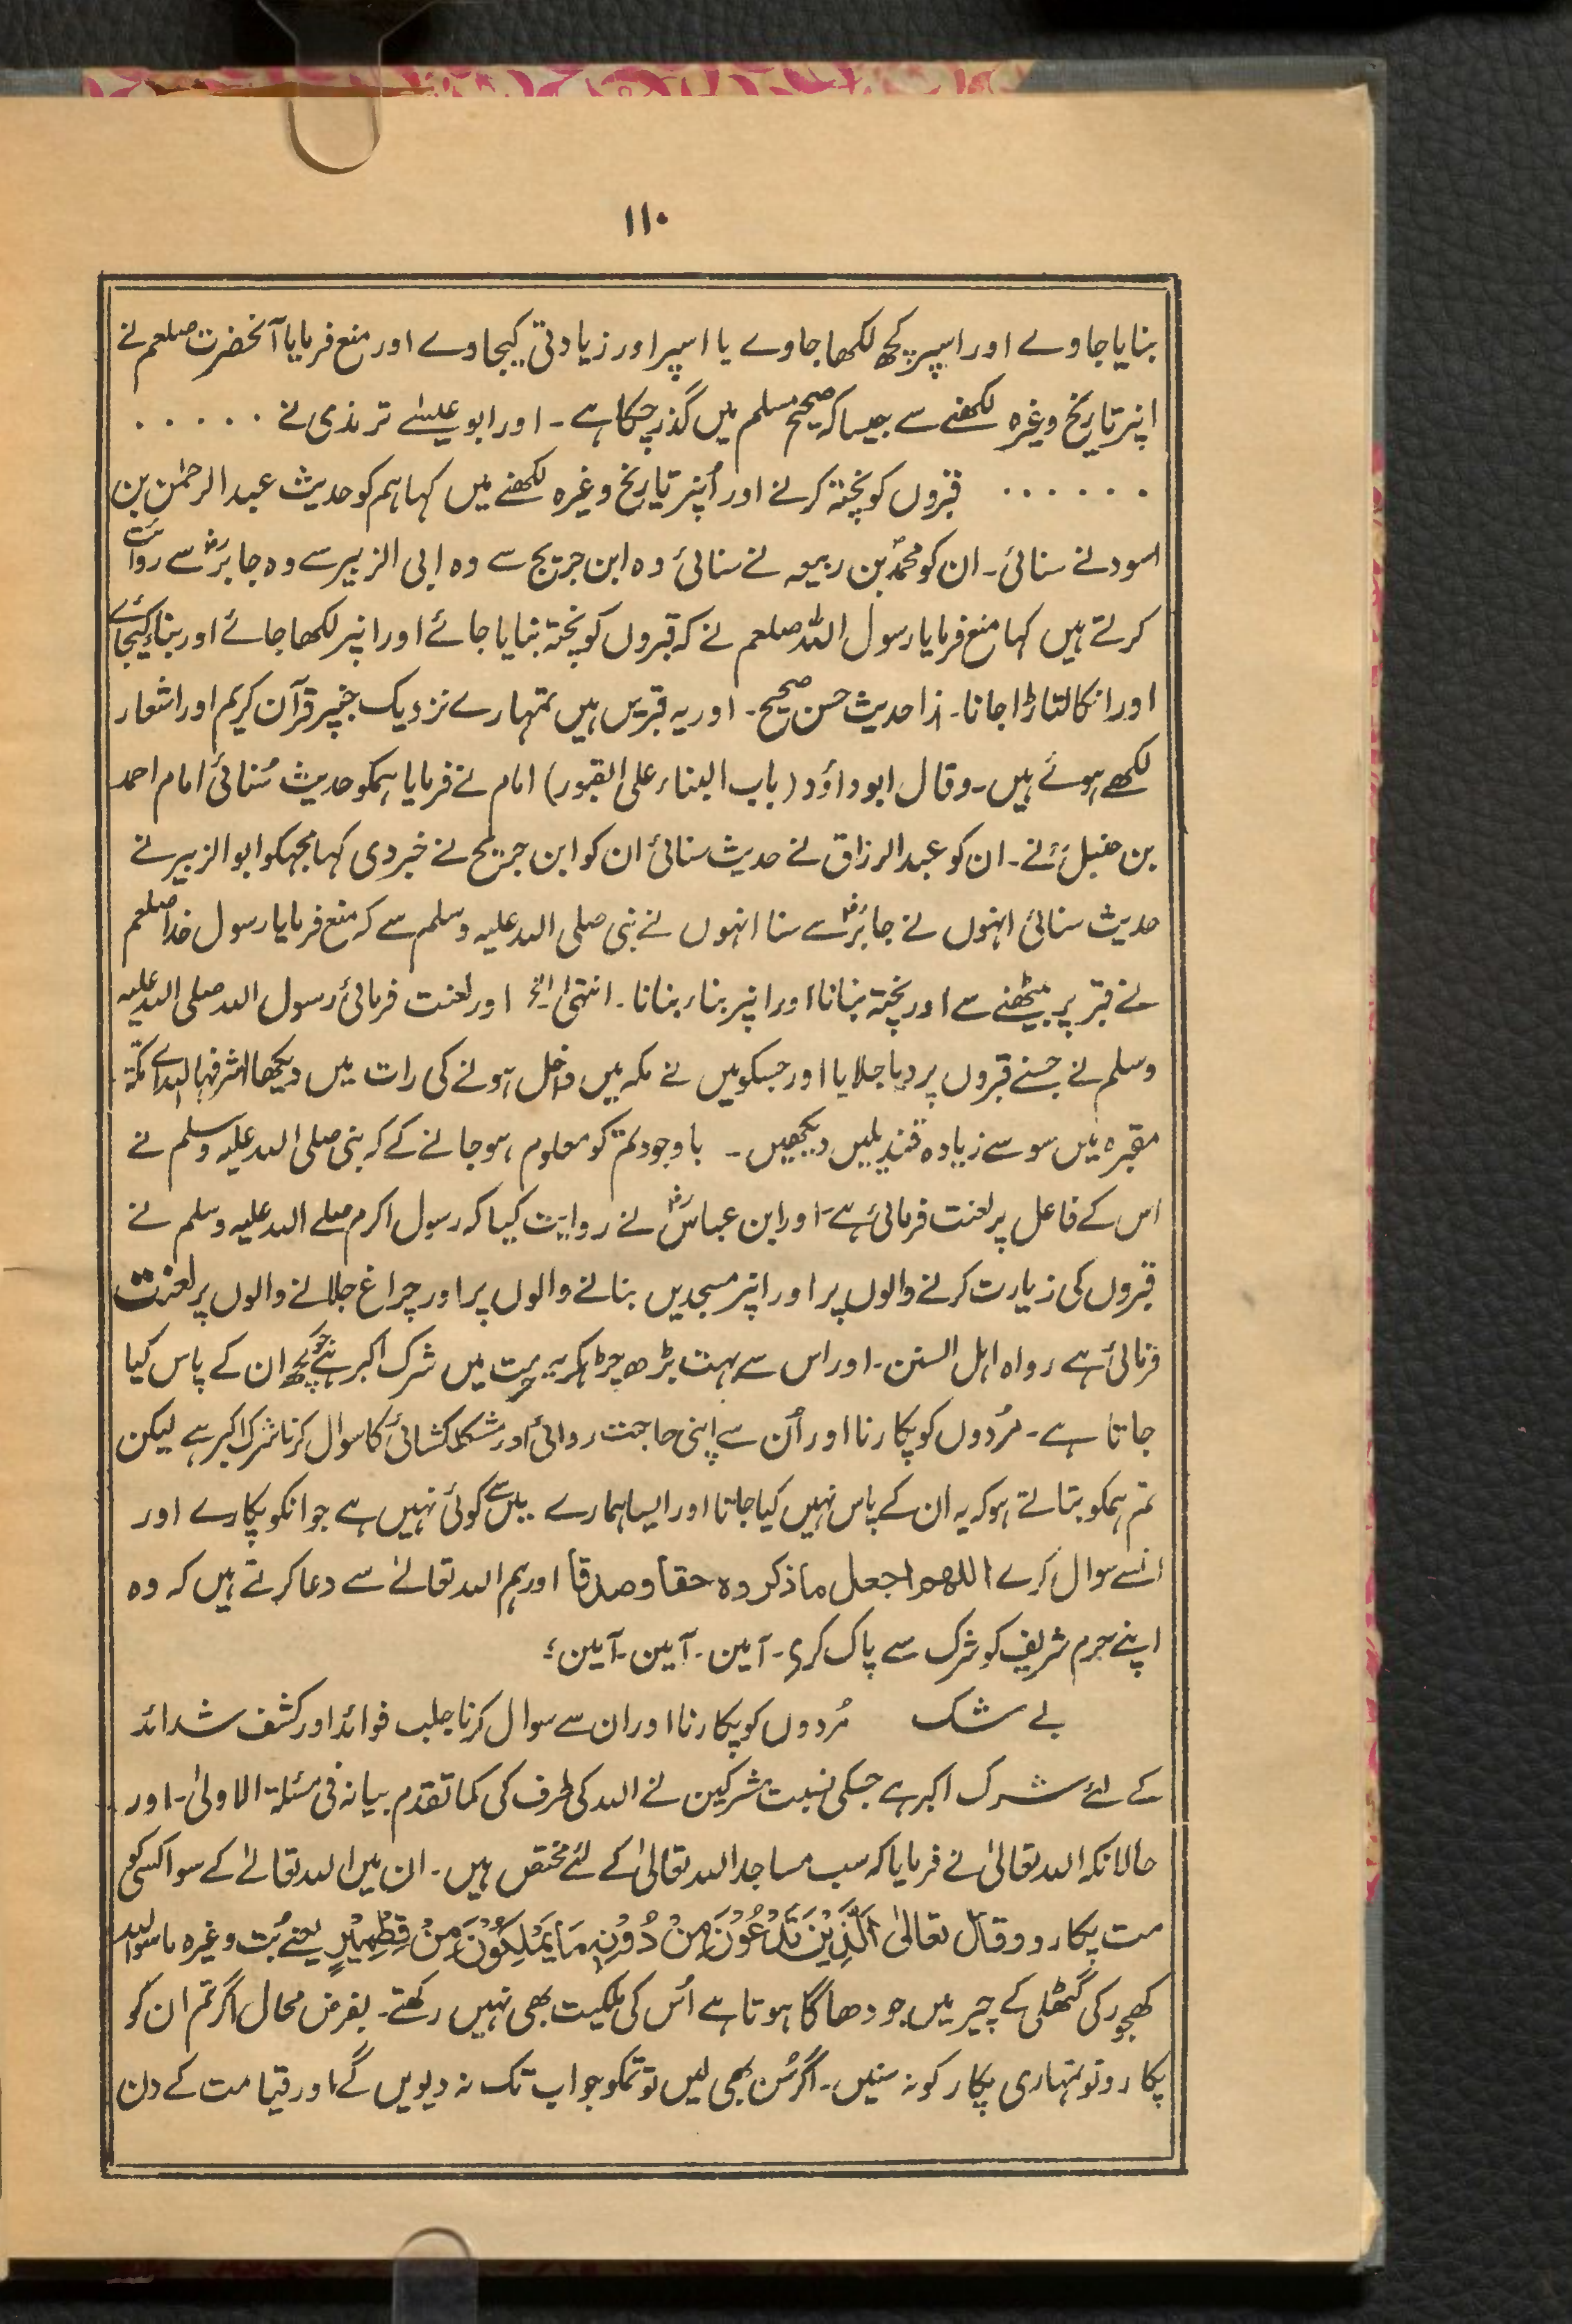 ۱۱۰
بنایا جاوے اور اسپر کچھ لکھا جاوے یا اسپر اور زیادتی کیجاوے اور منع فرمایا آنحضرت صلعم نے
اپنر تاریخ وغیرہ لکھنے سے جیسا کہ صحیح مسلم میں گذر چکا ہے ۔ اور ابو عیسٰے ترمذی نے ۰ ۰ ۰ ۰ ۰
۰ ۰ ۰ ۰ ۰ ۰ قبروں کو پختہ کرنے اور اُپنر تاریخ وغیرہ لکھنے میں کہا ہم کو حدیث عبد الرحمٰن بن
اسود نے سنائی ۔ ان کو محمدؐ بن ربیعہ نے سنائی وہ ابن جریج سے وہ ابی الزبیر سے وہ جابرؓ سے روائت
کرتے ہیں کہا منع فرمایا رسول اللہ صلعم نے کہ قبروں کو پختہ بنایا جائے اور اپنر لکھا جائے اور بناء کیجائے
اور انکا لتاڑا جانا ۔ ہٰذا حدیث حسن صحیح ۔ اور یہ قبریں ہیں تمہارے نزدیک جنپر قرآن کریم اور اشعار
لکھے ہوئے ہیں ۔ وقال ابو داؤد (باب البناء علی القبور) امام نے فرمایا ہمکو حدیث سُنائی امام احمد
بن حنبلؒ نے ۔ ان کو عبد الرزاق نے حدیث سنائی ان کو ابن جریح نے خبر دی کہا مجہکو ابو الزبیر نے
حدیث سنائی انہوں نے جابرؓ سے سنا انہوں نے نبی صلی اللہ علیہ وسلم سے کہ منع فرمایا رسول خدا صلعم
نے قبر پر بیٹھنے سے اور پختہ بنانا اور اپنر بناء بنانا ۔ انتہیٰ الخ اور لعنت فرمائی رسول اللہ صلی اللہ علیہ
وسلم نے جسنے قبروں پر دیا جلایا اور جسکو میں نے مکہ میں داخل ہونے کی رات میں دیکھا اشرفہا اللہ اے مکہ
مقبرہ میں سو سے زیادہ قندیلیں دیکھیں ۔ باوجود تم کو معلوم ہوجانے کے کہ نبی صلی اللہ علیہ وسلم نے
اس کے فاعل پر لعنت فرمائی ہے ۔ اور ابن عباسؓ نے روایت کیا کہ رسول اکرم صلے اللہ علیہ وسلم نے
قبروں کی زیارت کرنے والوں پر اور اپنر مسجدیں بنانے والوں پر اور چراغ جلانے والوں پر لعنت
فرمائی ہے رواہ اہل السنن ۔ اور اس سے بہت بڑھ چڑہکر یہ حرمت میں شرک اکبر ہے جو کچھ ان کے پاس کیا
جاتا ہے ۔ مُردوں کو پکارنا اور اُن سے اپنی حاجت روائی اور مشکلکشائی کا سوال کرنا شرک اکبر ہے لیکن
تم ہمکو بتاتے ہو کہ یہ ان کے پاس نہیں کیا جاتا اور ایسا ہمارے میں سے کوئی نہیں ہے جو انکو پکارے اور
انسے سوال کرے اللھم اجعل ما ذکروہ حقا وصدقا اور ہم اللہ تعالےٰ سے دعا کرتے ہیں کہ وہ
اپنے حرم شریف کو شرک سے پاک کری ۔ آمین ۔ آمین ۔ آمین ؛
بے شک مُردوں کو پکارنا اور ان سے سوال کرنا جلب فوائد اور کشف شدائد
کے لئے شرک اکبر ہے جسکی نسبت مشرکین نے اللہ کی طرف کی کما تقدم بیانہ فی مسئلۃ الاولیٰ ۔ اور
حالانکہ اللہ تعالیٰ نے فرمایا کہ سب مساجد اللہ تعالیٰ کے لئے مختص ہیں ۔ ان میں اللہ تعالےٰ کے سوا کسی کو
مت پکارو وقال تعالیٰ اَلَّذِیْنَ تَدْعُوْنَ مِنْ دُوْنِہٖ مَا یَمْلِکُوْنَ مِنْ قِطْمِیْرٍ یعنے بُت وغیرہ ماسوا اللہ
کھجور کی گٹھلی کے چیر میں جو دھاگا ہوتا ہے اُس کی ملکیت بھی نہیں رکھتے ۔ بفرض محال اگر تم ان کو
پکارو تو تمہاری پکار کو نہ سنیں ۔ اگر سُن بھی لیں تو تمکو جواب تک نہ دیویں گے اور قیامت کے دن